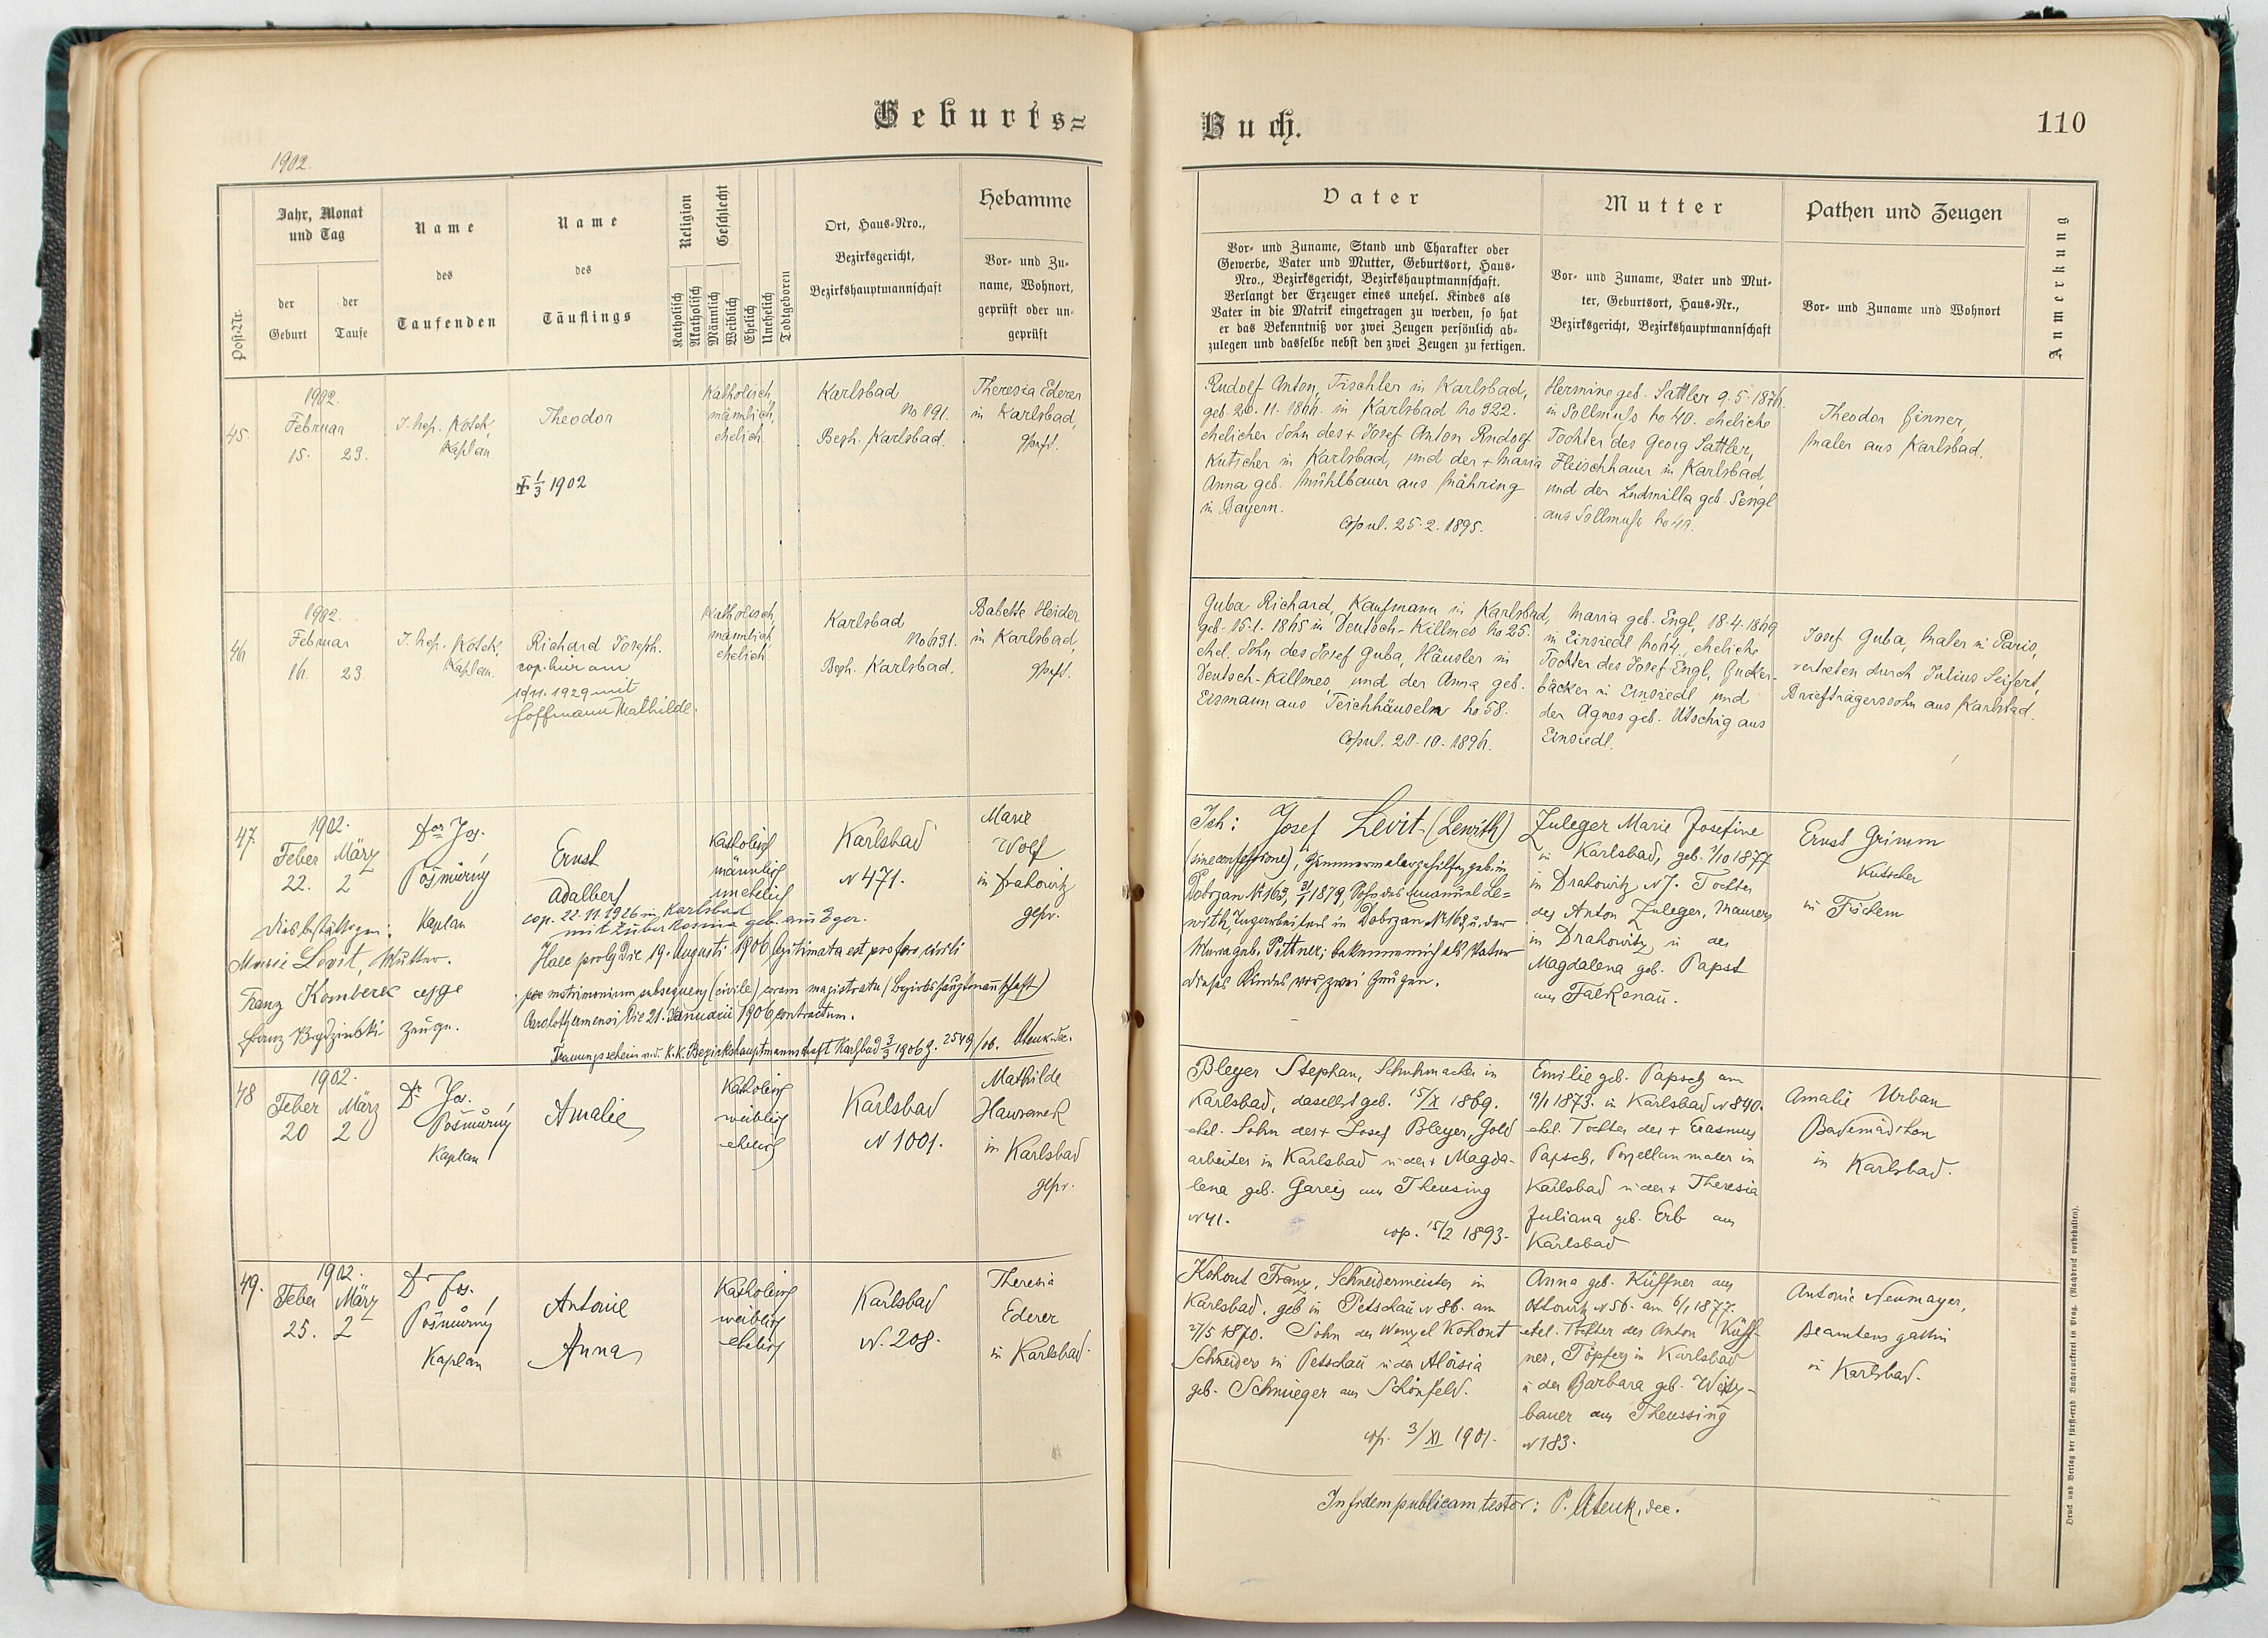 Geburts=
Buch.
110
1902.
Post-Nr.
Jahr, Monat
und Tag
der
Geburt
der
Taufe
Name
des
Taufenden
Name
des
Täuflings
Religion
Katholisch
Akatholisch
Geschlecht
Männlich
Weiblich
Ehelich
Unehelich
Todtgeboren
Ort, Haus-Nro.,
Bezirksgericht,
Bezirkshauptmannschaft
Hebamme
Vor- und Zu-
name, Wohnort,
geprüft oder un-
geprüft
Vater
Vor- und Zuname, Stand und Charakter oder
Gewerbe, Vater und Mutter, Geburtsort, Haus-
Nro., Bezirksgericht, Bezirkshauptmannschaft.
Verlangt der Erzeuger eines unehel. Kindes als
Vater in die Matrik eingetragen zu werden, so hat
er das Bekenntniß vor zwei Zeugen persönlich ab-
zulegen und dasselbe nebst den zwei Zeugen zu fertigen.
Mutter
Vor- und Zuname, Vater und Mut-
ter, Geburtsort, Haus-Nr.,
Bezirksgericht, Bezirkshauptmannschaft
Pathen und Zeugen
Vor- und Zuname und Wohnort
Anmerkung
45.
1902.
Februar
15. 23.
Kaplan
Theodor
1/3 1902
Katholisch,
männlich,
ehelich
Karlsbad
No 191.
Begh. Karlsbad.
Theresia Ederer
in Karlsbad,
Rudolf Anton, Tischler in Karlsbad,
geb. 20. 11. 1866. in Karlsbad No 922.
ehelicher Sohn des + Josef Anton Rudolf
Kutscher in Karlsbad, und der + Maria
Anna geb. Mühlbauer aus Mähring
in Bayern.
Copul. 25. 2. 1895.
Hermine geb. Sattler 9. 5. 1876.
in Sollmuß No 40. eheliche
Tochter des Georg Sattler,
Fleischhauer in Karlsbad
und der Ludmilla geb. Sengl
aus Sollmuß
Theodor Ginner,
Maler aus Karlsbad.
46
1902.
Februar
16. 23.
Kaplan.
Richard Joseph.
cop. hier am
1929 mit
Hoffmann Mathilde.
Katholisch
männlich
ehelich
Karlsbad
No 691.
Begh. Karlsbad.
Babette Heider
in Karlsbad,
Guba Richard, Kaufmann in Karlsbad,
geb. 15. 1. 1865 in Deutsch-Killmes No 25.
ehel. Sohn des Josef Guba, Häusler in
Deutsch-Killmes und der Anna geb.
Eismann aus Teichhäuseln No 58.
Copul. 20. 10. 1896.
Maria geb. Engl, 18. 4. 1869
in Einsiedl No 64, eheliche
Tochter des Josef Engl,
bäcker in Einsiedl und
der Agnes geb. Utschig aus
Einsiedl.
Josef Guba, Maler in Paris,
vertreten durch Julius Seifert,
Briefträgerssohn aus Karlsbad.
47.
1902.
Feber März
22. 2
Jos.
Pošmúrný
Kaplan
Ernst
Adalbert
Katholisch
männlich
unehelich
Karlsbad
N 471.
Marie
Wolf
in Drahowitz
gepr.
cop. 22. 11. 1926 in Karlsbad
mit Zuber Rosina geb. aus Eger.
dies bestättigen:
Marie Levit, Mutter.
Franz Komberec
Zeuge.
Haec proles die 19. Augusti 1906 legitimata est pro foro civili
per matrimonium subsequens (civile) coram magistratu (Bezirkshauptmannschaft)
Carolothermensi die 21. Januarii 1906 contractum.
Trauungsschein v. d. K. K. Bezirkshauptmannschaft Karlsbad 3/3 1906 Z. 2549/06.
Ich: Josef Levit (Lewith)
(sine confessione), Zimmermalergehilfe, geb. in
Dobrzan Nr 163, 1879, Sohn des Emanuel Le=
with, in Dobrzan Nr 163 u. der
geb. Pittner; bekenne mich als Vater
dieses Kindes vor zwei Zeugen.
Zuleger Marie Josefine
in Karlsbad, geb. 1877
in Drahowitz N 7. Tochter
des Anton Zuleger, Maurers
in Drahowitz u der
Magdalena geb. Papst
aus Falkenau.
Ernst Grimm
Kutscher
in Fischern
48
1902.
Feber März
20 2
Dr Jos.
Pošmúrný
Kaplan
Amalie
Katholisch
weiblich
ehelich
Karlsbad
N 1001.
Mathilde
Hawranek
in Karlsbad
gepr.
Bleyer Stephan, Schuhmacher in
Karlsbad, daselbst geb. 15/X 1869.
ehel. Sohn des + Josef Bleyer, Gold
arbeiter in Karlsbad u der + Magda-
lena geb. Gareis aus Theusing
N 41.
cop. 15/2 1893.
Emilie geb. Papsch am
19/1 1873. in Karlsbad N 840.
ehel. Tochter des + Erasmus
Papsch, Porzellanmaler in
Karlsbad u der + Theresia
Juliana geb. Erb aus
Karlsbad
Amalie Urban
Bademädchen
in Karlsbad.
49.
1902.
Feber März
25. 2
Dr Jos.
Pošmúrný
Kaplan
Antonie
Anna
Katholisch
weiblich
ehelich
Karlsbad
N. 208.
Theresia
Ederer
in Karlsbad.
Kohout Franz, Schneidermeister in
Karlsbad, geb in Petschau N 86. am
27/5 1870. Sohn des Wenzel Kohout
Schneiders in Petschau u der Aloisia
geb. Schmieger aus Schönfeld.
cop. 3/XI 1901.
Anna geb. Küffner aus
N 56. am 6/1 1877.
ehel. Tochter des Anton Küff-
ner, Töpfers in Karlsbad
u der Barbara geb.
bauer aus Theussing
N 183.
Antonie Neumayer,
Beamtensgattin
in Karlsbad.
In fidem publicam testor: P. dec.
Druck und Verlag der fürst-erzb. Buchdruckerei in Prag. (Nachdruck vorbehalten).